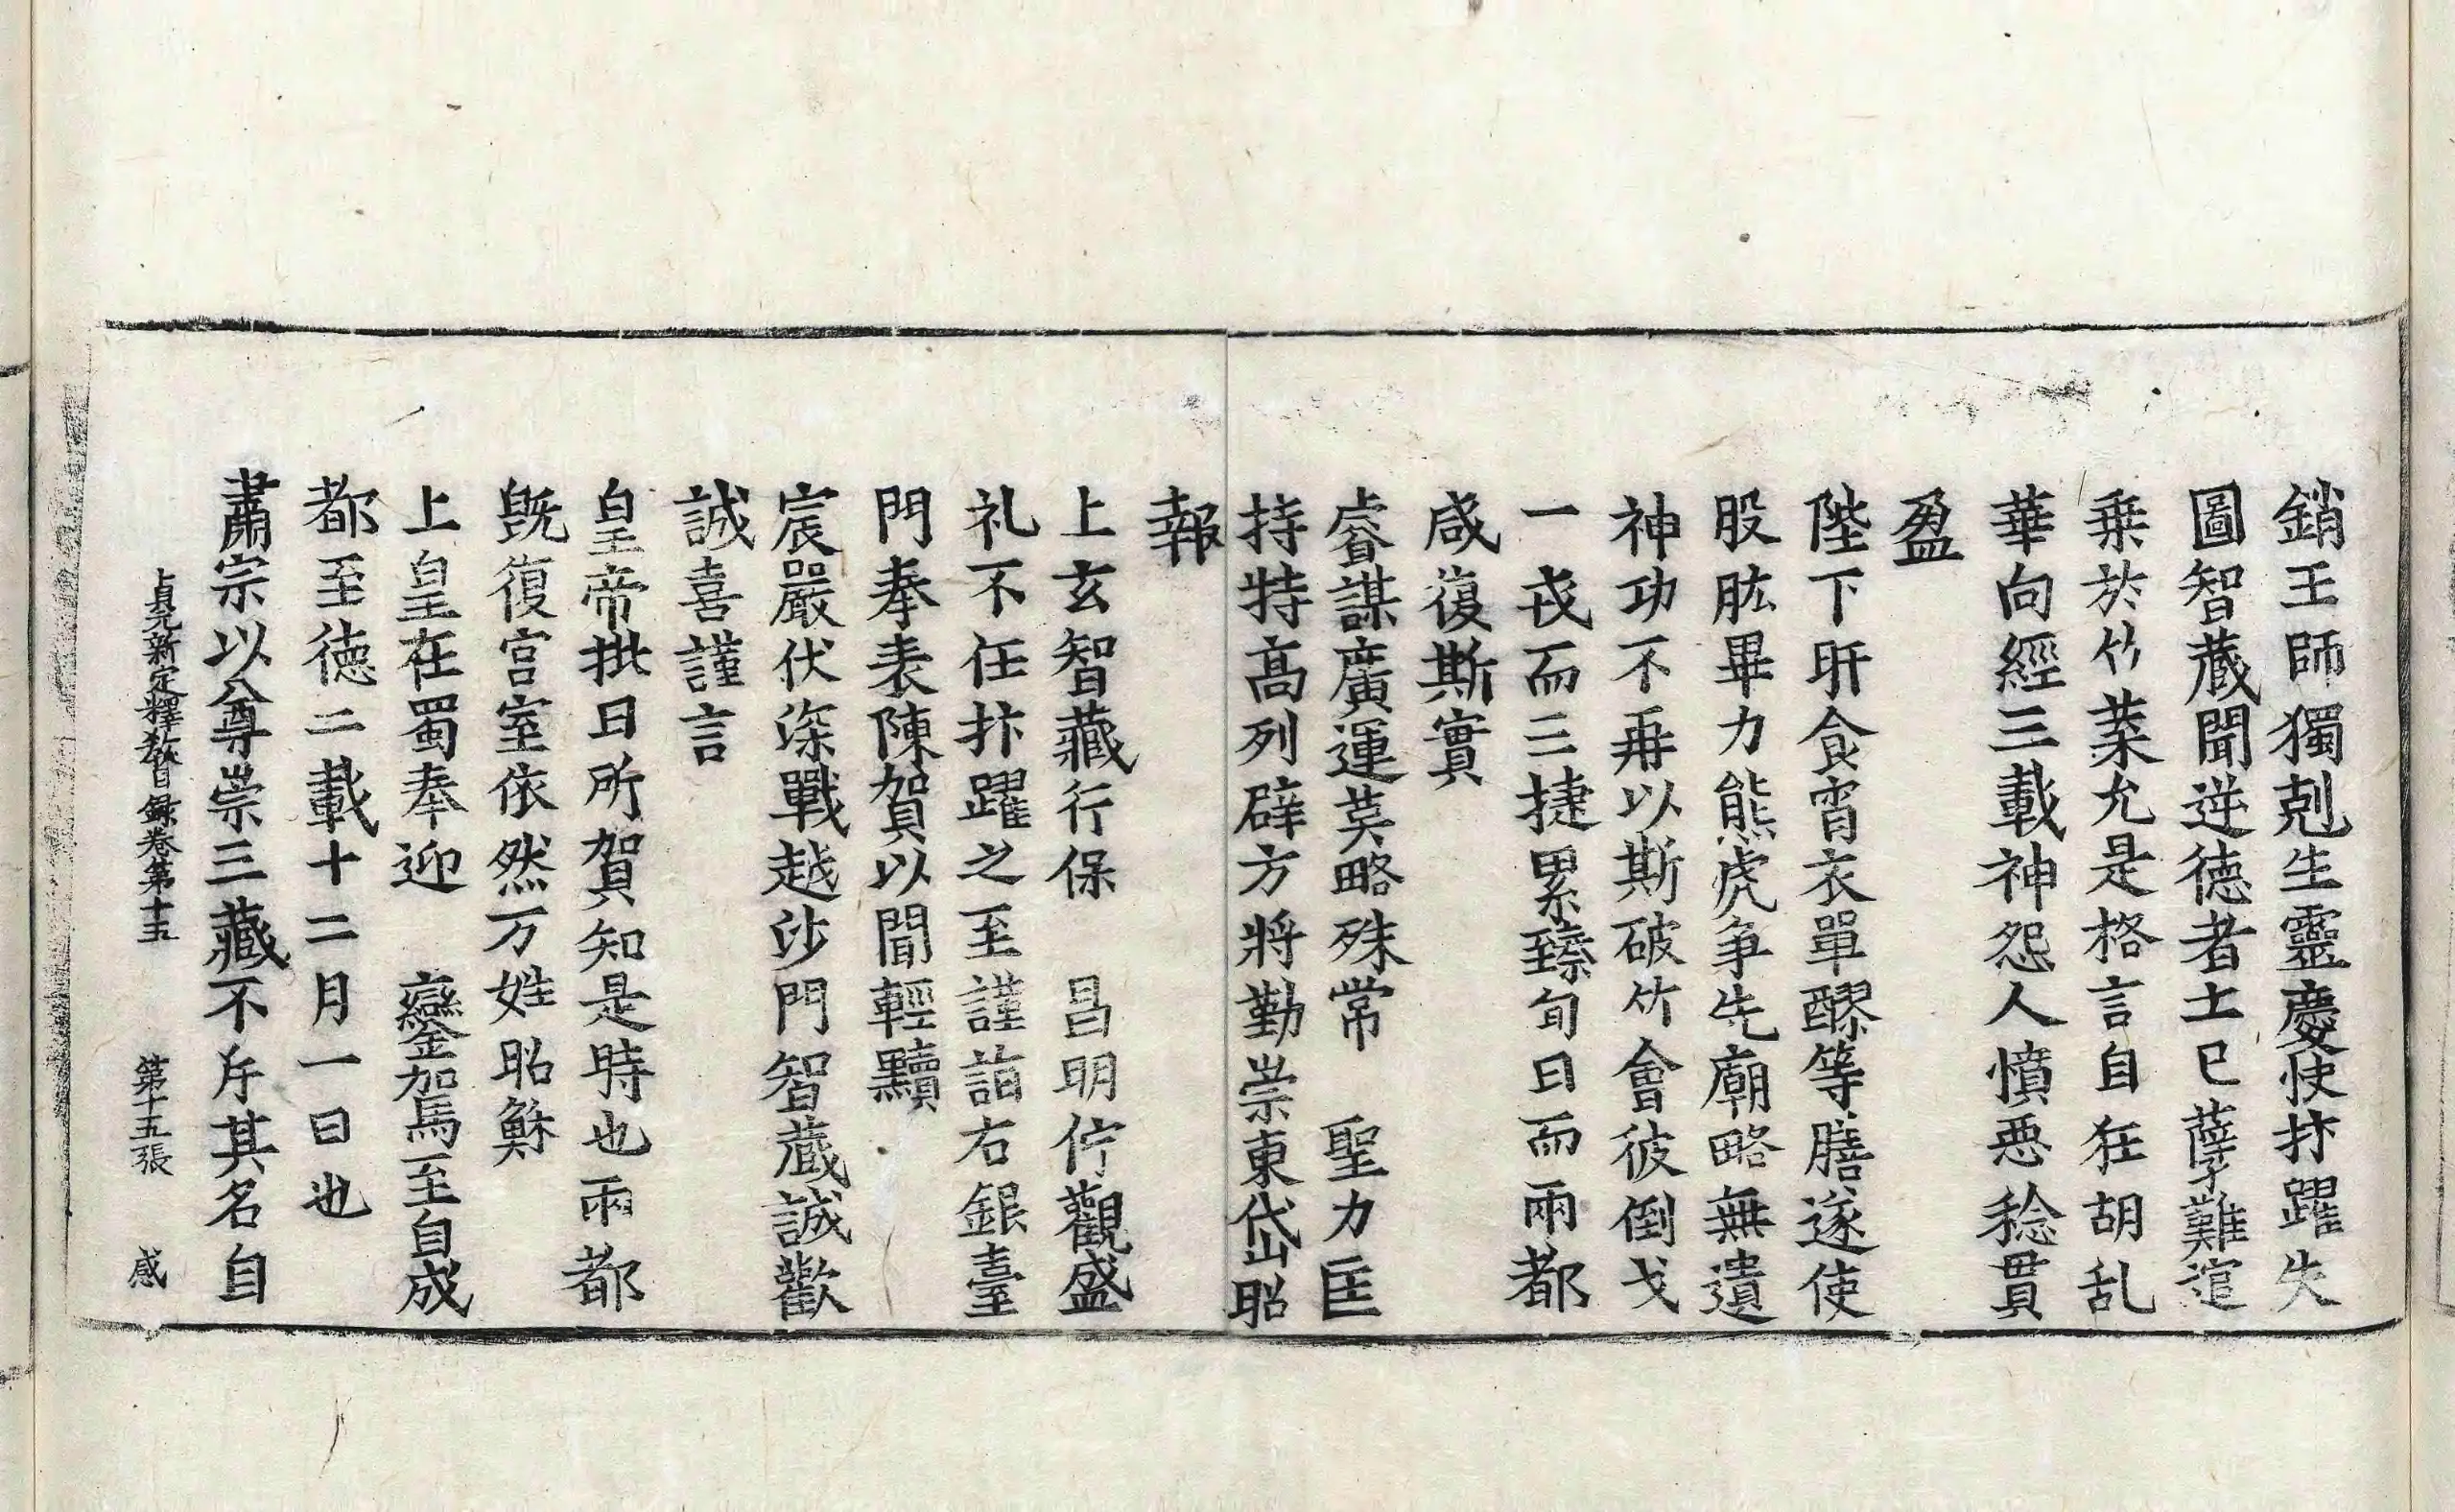 銷王師獨剋生靈慶快抃躍失
圖智蔵聞逆徳者士巳孽難逭
乗於竹葉允是格言自狂胡乱
華向經三載神怨人憤惡稔貫
盈
陛下旰食宵衣單醪等膳遂使
股肱畢力熊虎争先廟略無遺
神功不再以斯破竹會彼倒戈
一戎而三捷累臻旬日而兩都
咸復斯實
睿謀廣運英略殊常　聖力匡
持特高列辟方將勤崇東岱昭
報
上玄智藏行保　昌明佇觀盛
礼不任抃躍之至謹詣右銀臺
門奉表陳賀以聞輕黷
宸嚴伏深戰越沙門智蔵誠歡
誠喜謹言
皇帝批曰所賀知是時也兩都
既復宫室依然万姓昭穌
上皇在蜀奉迎　鑾駕至自成
都至徳二載十二月一日也
肅宗以尊崇三藏不斥其名自
貞元新定釋教目録卷第十五　第十五張　感